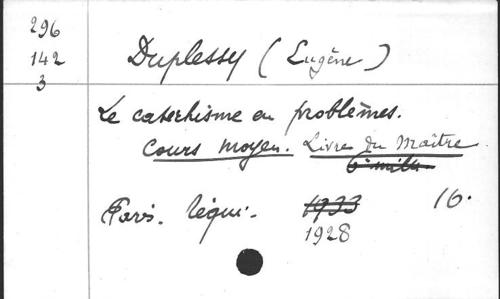 296
142
3
Duplessy (Eugène)
Le catéchisme en problèmes.
Cours moyen. Livre du Maître
6e mille
Paris. Téqui. 1933 16.
1928